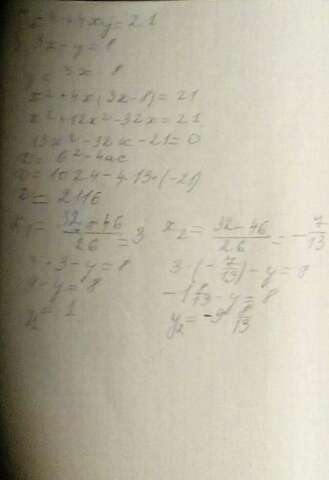 x² + 4xy = 21
3x - y = 8
y = 3x - 8
x² + 4x(3x-8) = 21
x² + 12x² - 32x = 21
13x² - 32x - 21 = 0
D = b² - 4ac
D = 1024 - 4·13·(-21)
D = 2116
x₁ = (32+46)/26 = 3
x₂ = (32-46)/26 = -7/13
3·3 - y = 8
3·(-7/13) - y = 8
9 - y = 8
-1 8/13 - y = 8
y₁ = 1
y₂ = -9 8/13